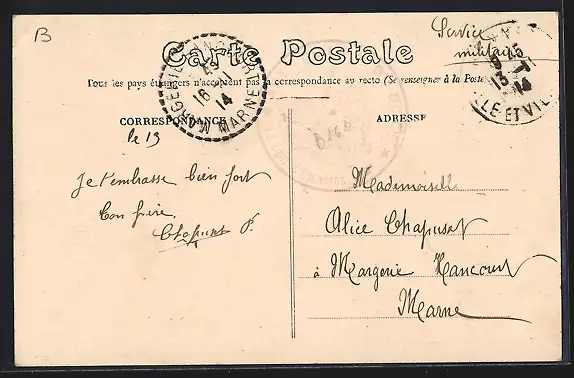 B
Service
militaire
Carte Postale
Tous les pays étrangers n'acceptent pas la correspondance au recto (Se renseigner à la Poste
CORRESPONDANCE
ADRESSE
le 13
Je t'embrasse bien fort
ton frère.
Chapusot P.
Mademoiselle
Alice Chapusot
à Margerie Hancourt
Marne
MARGERIE-HANCOURT
16
14
MARNE
13
14
ILLE ET VIL